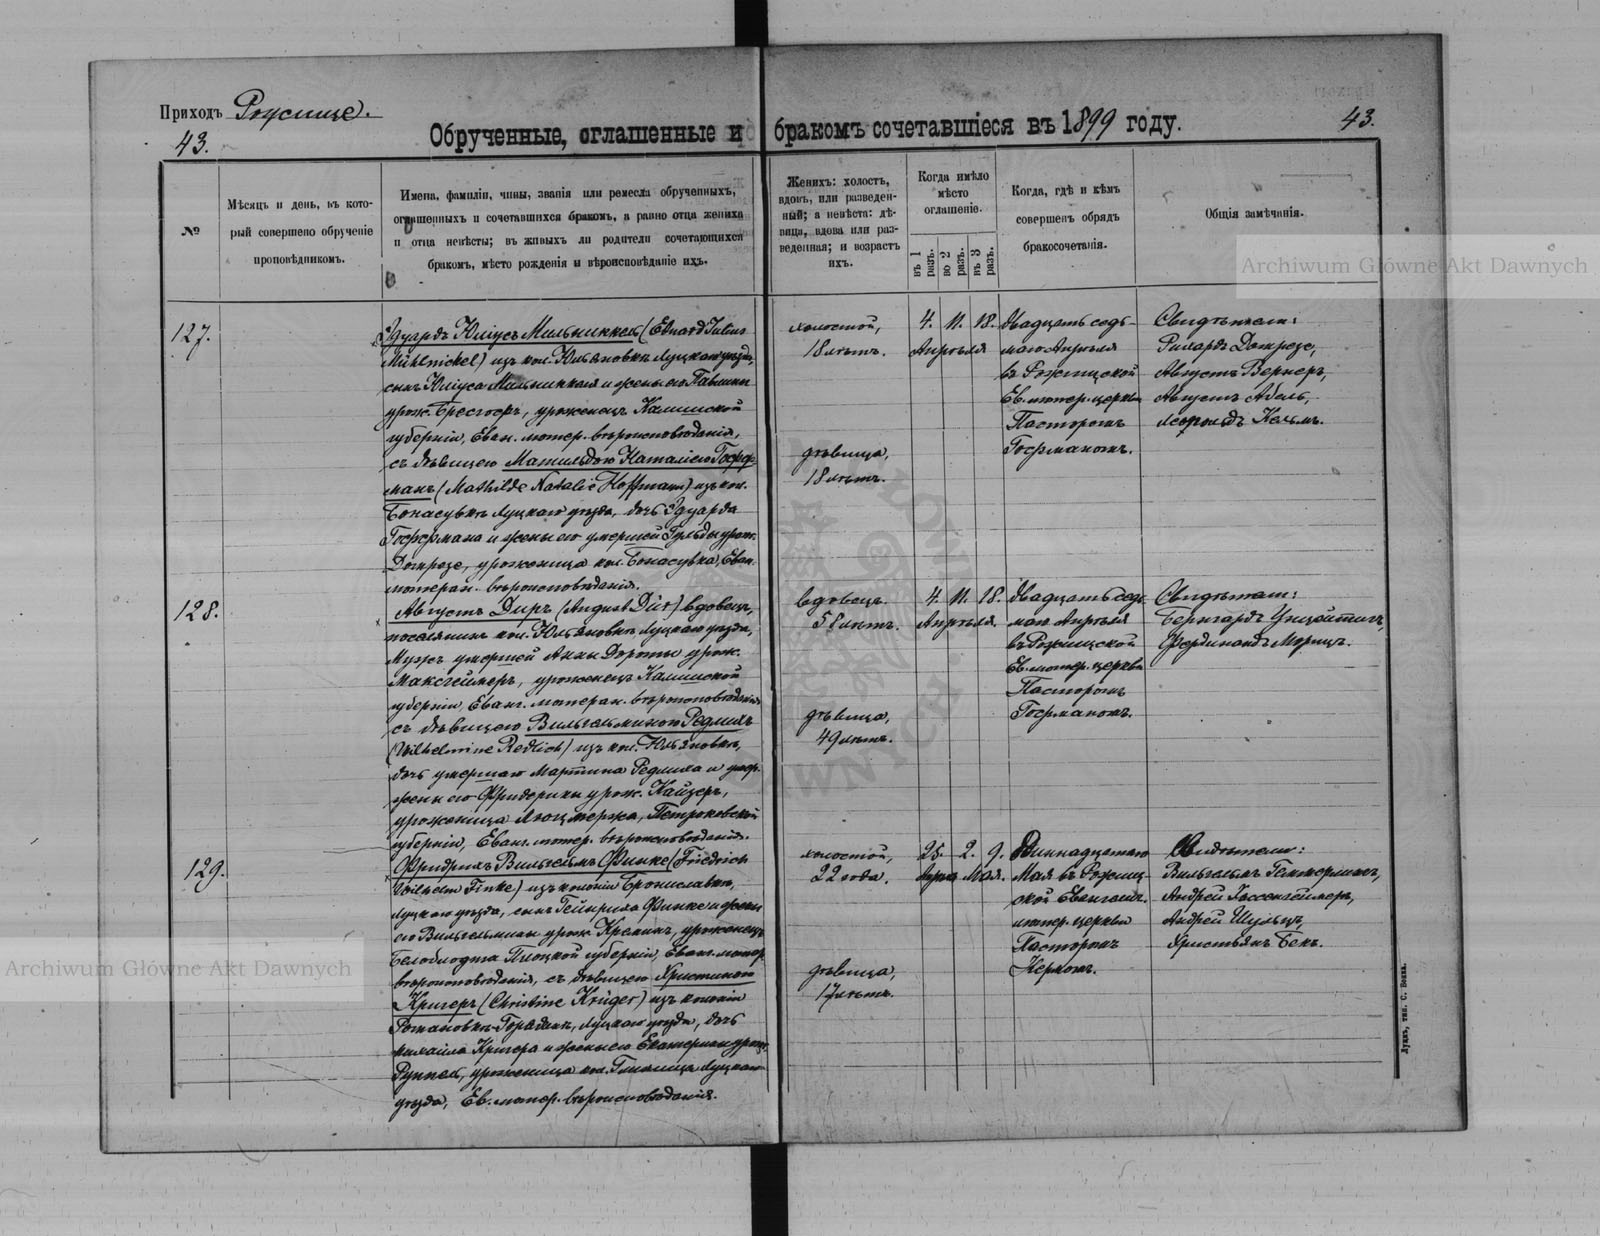 Приходъ Рожище.
43.
Обрученные, оглашенные и бракомъ сочетавшіеся въ 1899 году.
43.
№
Мѣсяцъ и день, въ кото-
рый совершено обрученіе
проповѣдникомъ.
Имена, фамиліи, чины, званія или ремесла обрученныхъ,
оглашенныхъ и сочетавшихся бракомъ, а равно отца жениха
и отца невѣсты; въ живыхъ ли родители сочетающихся
бракомъ, мѣсто рожденія и вѣроисповѣданіе ихъ.
Женихъ: холостъ,
вдовъ, или разведен-
ный; а невѣста: дѣ-
вица, вдова или раз-
веденная; и возрастъ
ихъ.
Когда имѣло
мѣсто
оглашеніе.
въ 1 разъ.
во 2 разъ.
въ 3 разъ.
Когда, гдѣ и кѣмъ
совершенъ обрядъ
бракосочетанія.
Общія замѣчанія.
127.
Эдуардъ Юліусъ Мильникель (Eduard Julius
Mühlnickel) изъ кол. Юльяновки Луцкаго уѣзда,
сынъ Юліуса Мильникеля и жены его Павлины
урож. , уроженецъ Калишской
губерніи, Еван. лютер. вѣроисповѣданія,
съ дѣвицею Матильдою Наталіею Гофф-
манъ (Mathilde Natalie Hoffmann) изъ кол.
Бонасувкъ Луцкаго уѣзда, дочь Эдуарда
Гоффмана и жены его умершей Гульды урож.
Домрезе, уроженица кол. Бонасувка, Еван.
лютеран. вѣроисповѣданія.
холостой,
18 лѣтъ.
дѣвица,
18 лѣтъ.
4. 11. 18.
Апрѣля
двадцать седь-
маго Апрѣля
въ Рожищской
Ев. лютер. церкви
Пасторомъ
Гофманомъ.
Свидѣтели:
Рихардъ Домрезе,
Августъ Вернеръ,
Августъ Абель,
Леопольдъ Кельмъ.
128.
Августъ Диръ (August Dür) вдовецъ,
поселянинъ кол. Юльяновки Луцкаго уѣзда,
Мужъ умершей Анны Дороты урож.
Максгеймеръ, уроженецъ Калишской
губерніи, Еванг. лютеран. вѣроисповѣданія
съ дѣвицею Вильгельминою Редлихъ
(Wilhelmine Redlich) изъ кол. Юльяновки,
дочь умершаго Мартина Редлиха и умер.
жены его Фридерики урож. Кайзеръ,
уроженица , Петроковской
губерніи, Еванг. лютер. вѣроисповѣданія.
вдовецъ.
58 лѣтъ.
дѣвица,
49 лѣтъ.
4. 11. 18.
Апрѣля.
двадцать седь-
маго Апрѣля
въ Рожищской
Ев. лютер. церкви
Пасторомъ
Гофманомъ.
Свидѣтели:
Бернгардъ ,
Фердинандъ Морицъ.
129.
Фридрихъ Вильгельмъ Финке (Friedrich
Wilhelm Finke) изъ колоніи Брониславки,
Луцкаго уѣзда, сынъ Гейнриха Финке и жены
его Вильгельмины урож. , уроженецъ
Плоцкой губерніи, Еванг. лютер.
вѣроисповѣданія, съ дѣвицею Христиною
Кригеръ (Christine Krüger) изъ колоніи
Романовки-Городокъ, Луцкаго уѣзда, дочь
Михаила Кригера и жены его Екатерины урож.
, уроженица кол. Луцкаго
уѣзда, Ев. лютер. вѣроисповѣданія.
холостой,
22 года.
дѣвица,
17 лѣтъ.
25. 2. 9.
Апрѣ Мая.
Одиннадцатаго
Мая въ Рожищ-
ской Евангелич.
лютер. церкви
Пасторомъ
Керномъ.
Свидѣтели:
Вильгельмъ ,
Андрей ,
Андрей Шульцъ,
Христьянъ Бекъ.
Луцкъ, тип. С. Бонка.
Archiwum Główne Akt Dawnych
Archiwum Główne Akt Dawnych